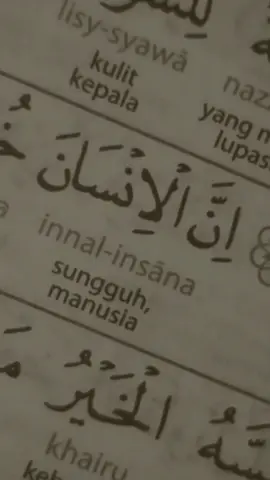 lisy-syawâ
kulit
kepala
yang
lupas
اِنَّ الْاِنْسَانَ
innal-insâna
sungguh,
manusia
الْخَيْرُ
khairu